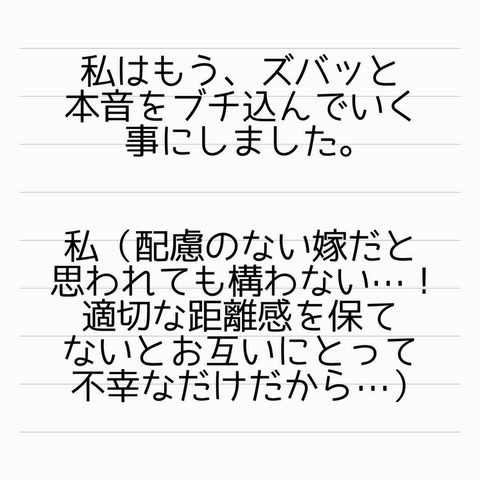 私はもう、ズバッと
本音をブチ込んでいく
事にしました。
私（配慮のない嫁だと
思われても構わない…！
適切な距離感を保て
ないとお互いにとって
不幸なだけだから…）